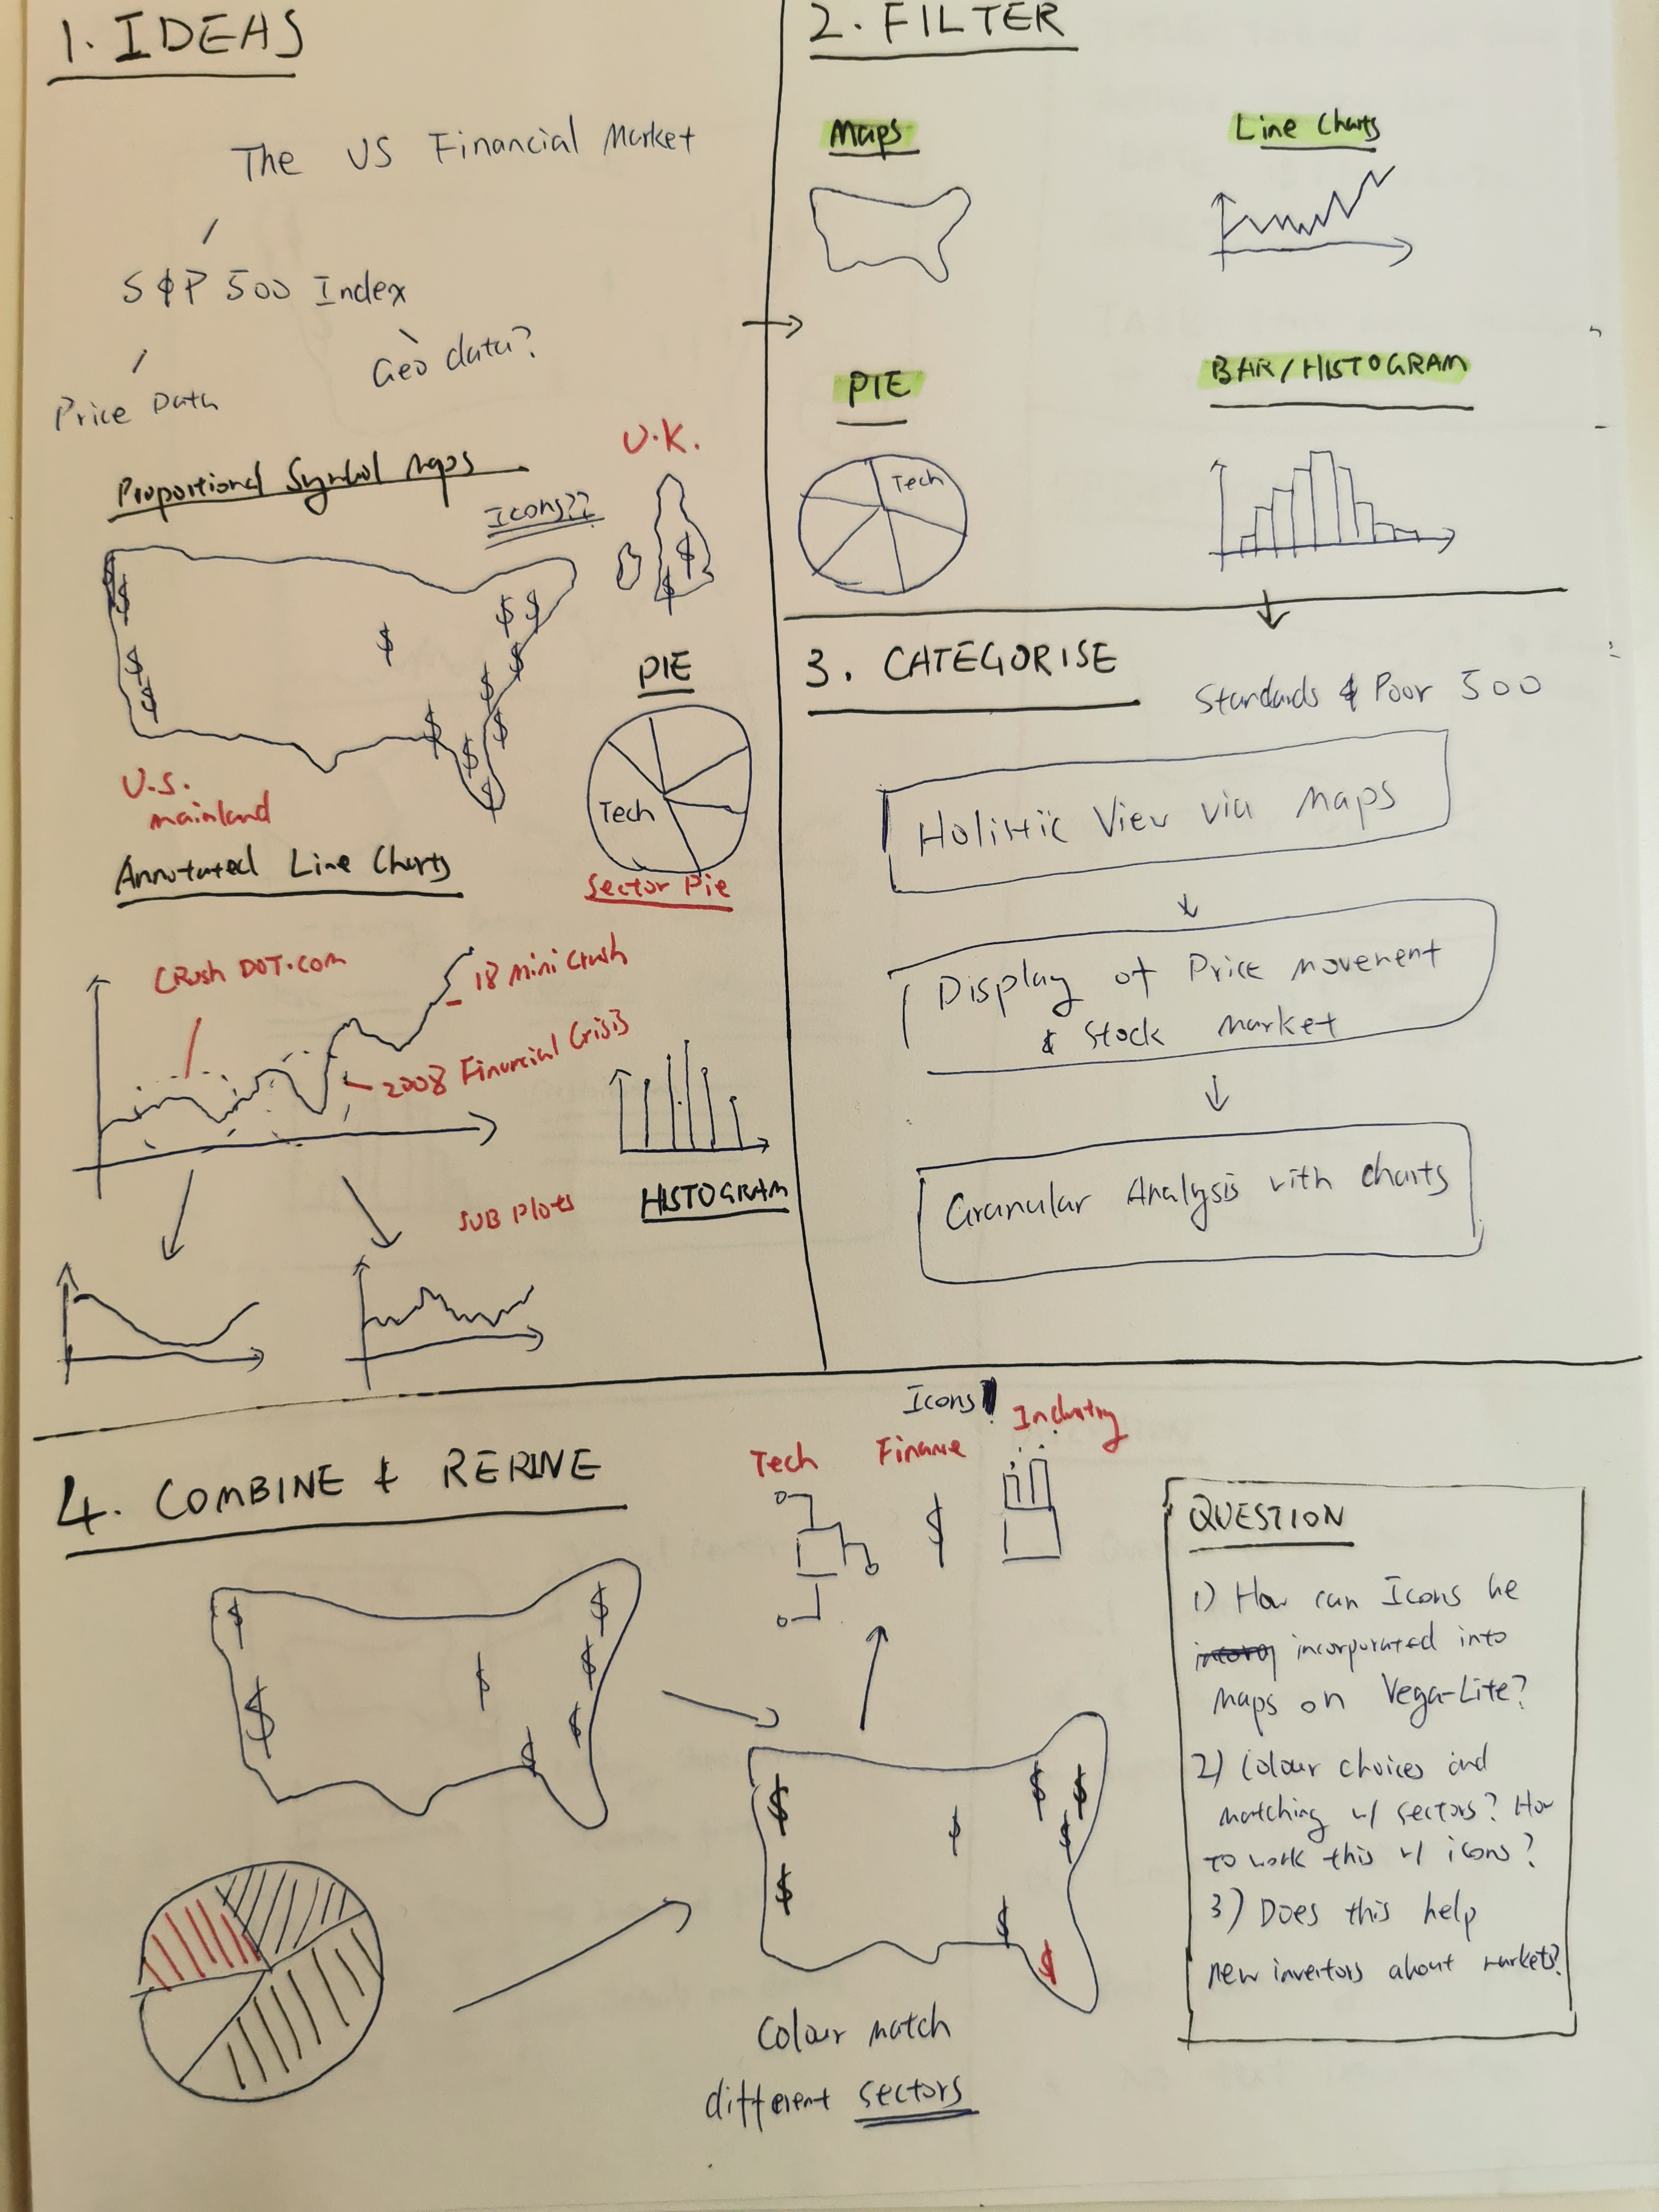 1. IDEAS
The US Financial Market
S&P 500 Index
Price Data
Geo data?
Proportional Symbol Maps
Icons??
U.K.
$ $
$ $ $ $ $ $ $ $ $ $ $ $ $
U.S.
mainland
PIE
Tech
Sector Pie
Annotated Line Charts
CRush DOT.com
18 Mini Crush
2008 Financial Crisis
HISTOGRAM
SUB Plots
2. FILTER
Maps
Line Charts
PIE
Tech
BAR/HISTOGRAM
3. CATEGORISE
Standards & Poor 500
Holistic View via Maps
Display of Price movement
& Stock market
Granular Analysis with charts
4. COMBINE & REFINE
$ $ $ $ $ $ $
Icons!
Tech
Finance
Industry
$
$ $ $ $ $ $ $ $
Colour match
different sectors
QUESTION
1) How can Icons be
incorporated into
maps on Vega-Lite?
2) Colour choices and
matching w/ sectors? How
to work this w/ icons?
3) Does this help
new investors about markets?